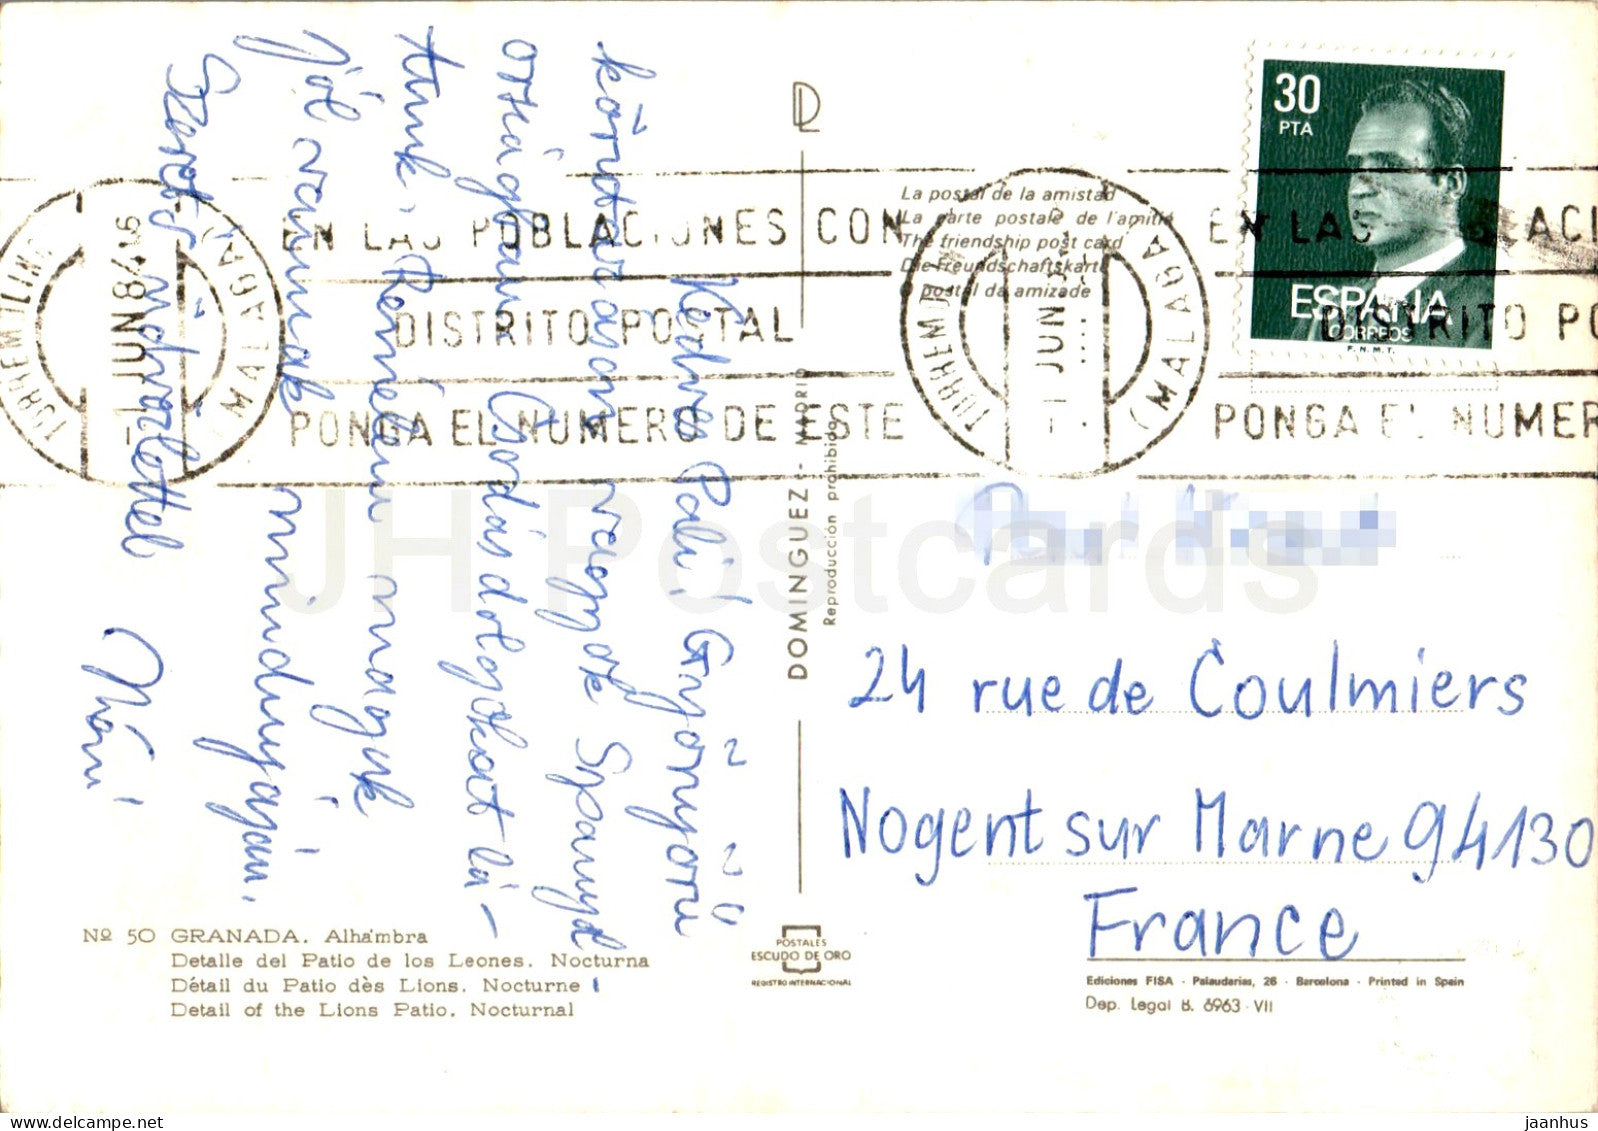 Kedves Pali! Gyönyörű
körutazáson vagyok Spanyol
országban. Csodás dolgokat lá-
ttunk. Remélem magak
jól vannak mindnyájan.
Szeretö üdvözlettel
Máni
Nº 50 GRANADA. Alhámbra
Detalle del Patio de los Leones. Nocturna
Détail du Patio dès Lions. Nocturne
Detail of the Lions Patio. Nocturnal
DOMINGUEZ - MADRID
Reproducción prohibida
POSTALES
ESCUDO DE ORO
REGISTRO INTERNACIONAL
La postal de la amistad
La carte postale de l'amitié
The friendship post card
Die Freundschaftskarte
postal da amizade
30
PTA
ESPAÑA
CORREOS
F.N.M.T.
TORREMOLINOS
(MALAGA)
-1 JUN 84
EN LAS POBLACIONES CON
DISTRITO POSTAL
PONGA EL NUMERO DE ESTE
TORREMOLINOS
(MALAGA)
-1 JUN
EN LAS POBLACI
DISTRITO PO
PONGA EL NUMER
24 rue de Coulmiers
Nogent sur Marne 94130
France
Ediciones FISA - Palaudarias, 26 - Barcelona - Printed in Spain
Dep. Legal B. 6963 - VII
JH Postcards
jaanhus © delcampe.net